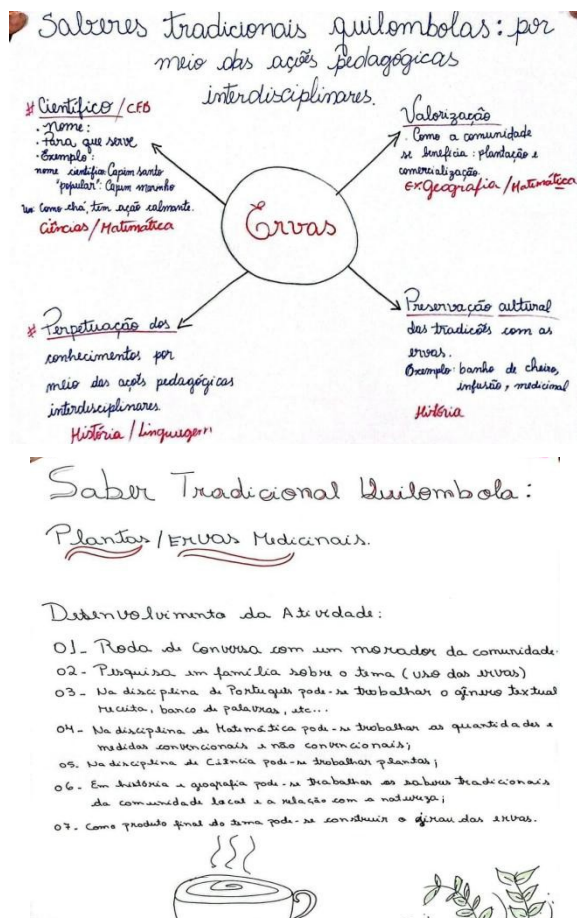 Saberes tradicionais quilombolas: por
meio das ações pedagógicas
interdisciplinares.
# Científico / CEB
• Nome:
• Para que serve
• Exemplo:
nome científico: Capim santo
"popular": Capim marinho
Uso: Como chá, tem ação calmante.
Ciências / Matemática
Valorização
. Como a comunidade
se beneficia: plantação e
comercialização
Ex: Geografia / Matemática
Ervas
# Perpetuação dos
conhecimentos por
meio das ações pedagógicas
interdisciplinares.
História / Linguagem
Preservação cultural
das tradições com as
ervas.
Exemplo: banho de cheiro,
infusão, medicinal
História
Saber Tradicional Quilombola:
Plantas / Ervas Medicinais.
Desenvolvimento da Atividade:
01- Roda de Conversa com um morador da comunidade.
02- Pesquisa em família sobre o tema (uso das ervas)
03- Na disciplina de Português pode-se trabalhar o gênero textual
receita, banco de palavras, etc...
04- Na disciplina de Matemática pode-se trabalhar as quantidades e
medidas convencionais e não convencionais;
05. Na disciplina de Ciência pode-se trabalhar plantas;
06- Em história e geografia pode-se trabalhar os saberes tradicionais
da comunidade local e a relação com a natureza;
07- Como produto final do tema pode-se construir o girau das ervas.